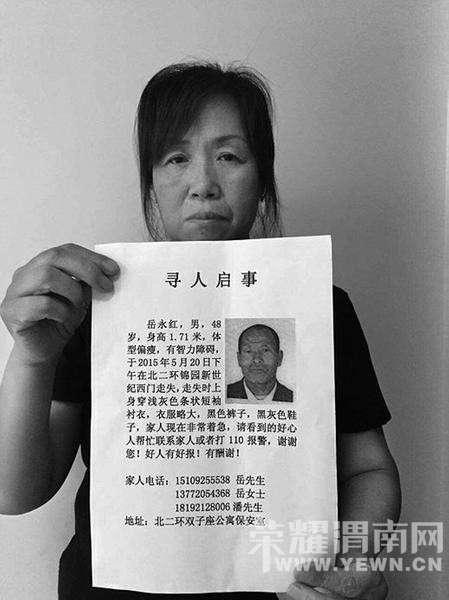 寻人启事
岳永红，男，48
岁，身高1.71米，体
型偏瘦，有智力障碍，
于2015年5月20日下
午在北二环锦园新世
纪西门走失，走失时上
身穿浅灰色条状短袖
衬衣，衣服略大，黑色裤子，黑灰色鞋
子，家人现在非常着急，请看到的好心
人帮忙联系家人或者打110报警，谢谢
您！好人有好报！有酬谢！
家人电话：15109255538 岳先生
13772054368 岳女士
18192128006 潘先生
地址：北二环双子座公寓保安室
荣耀渭南网
WWW.YEWN.CN